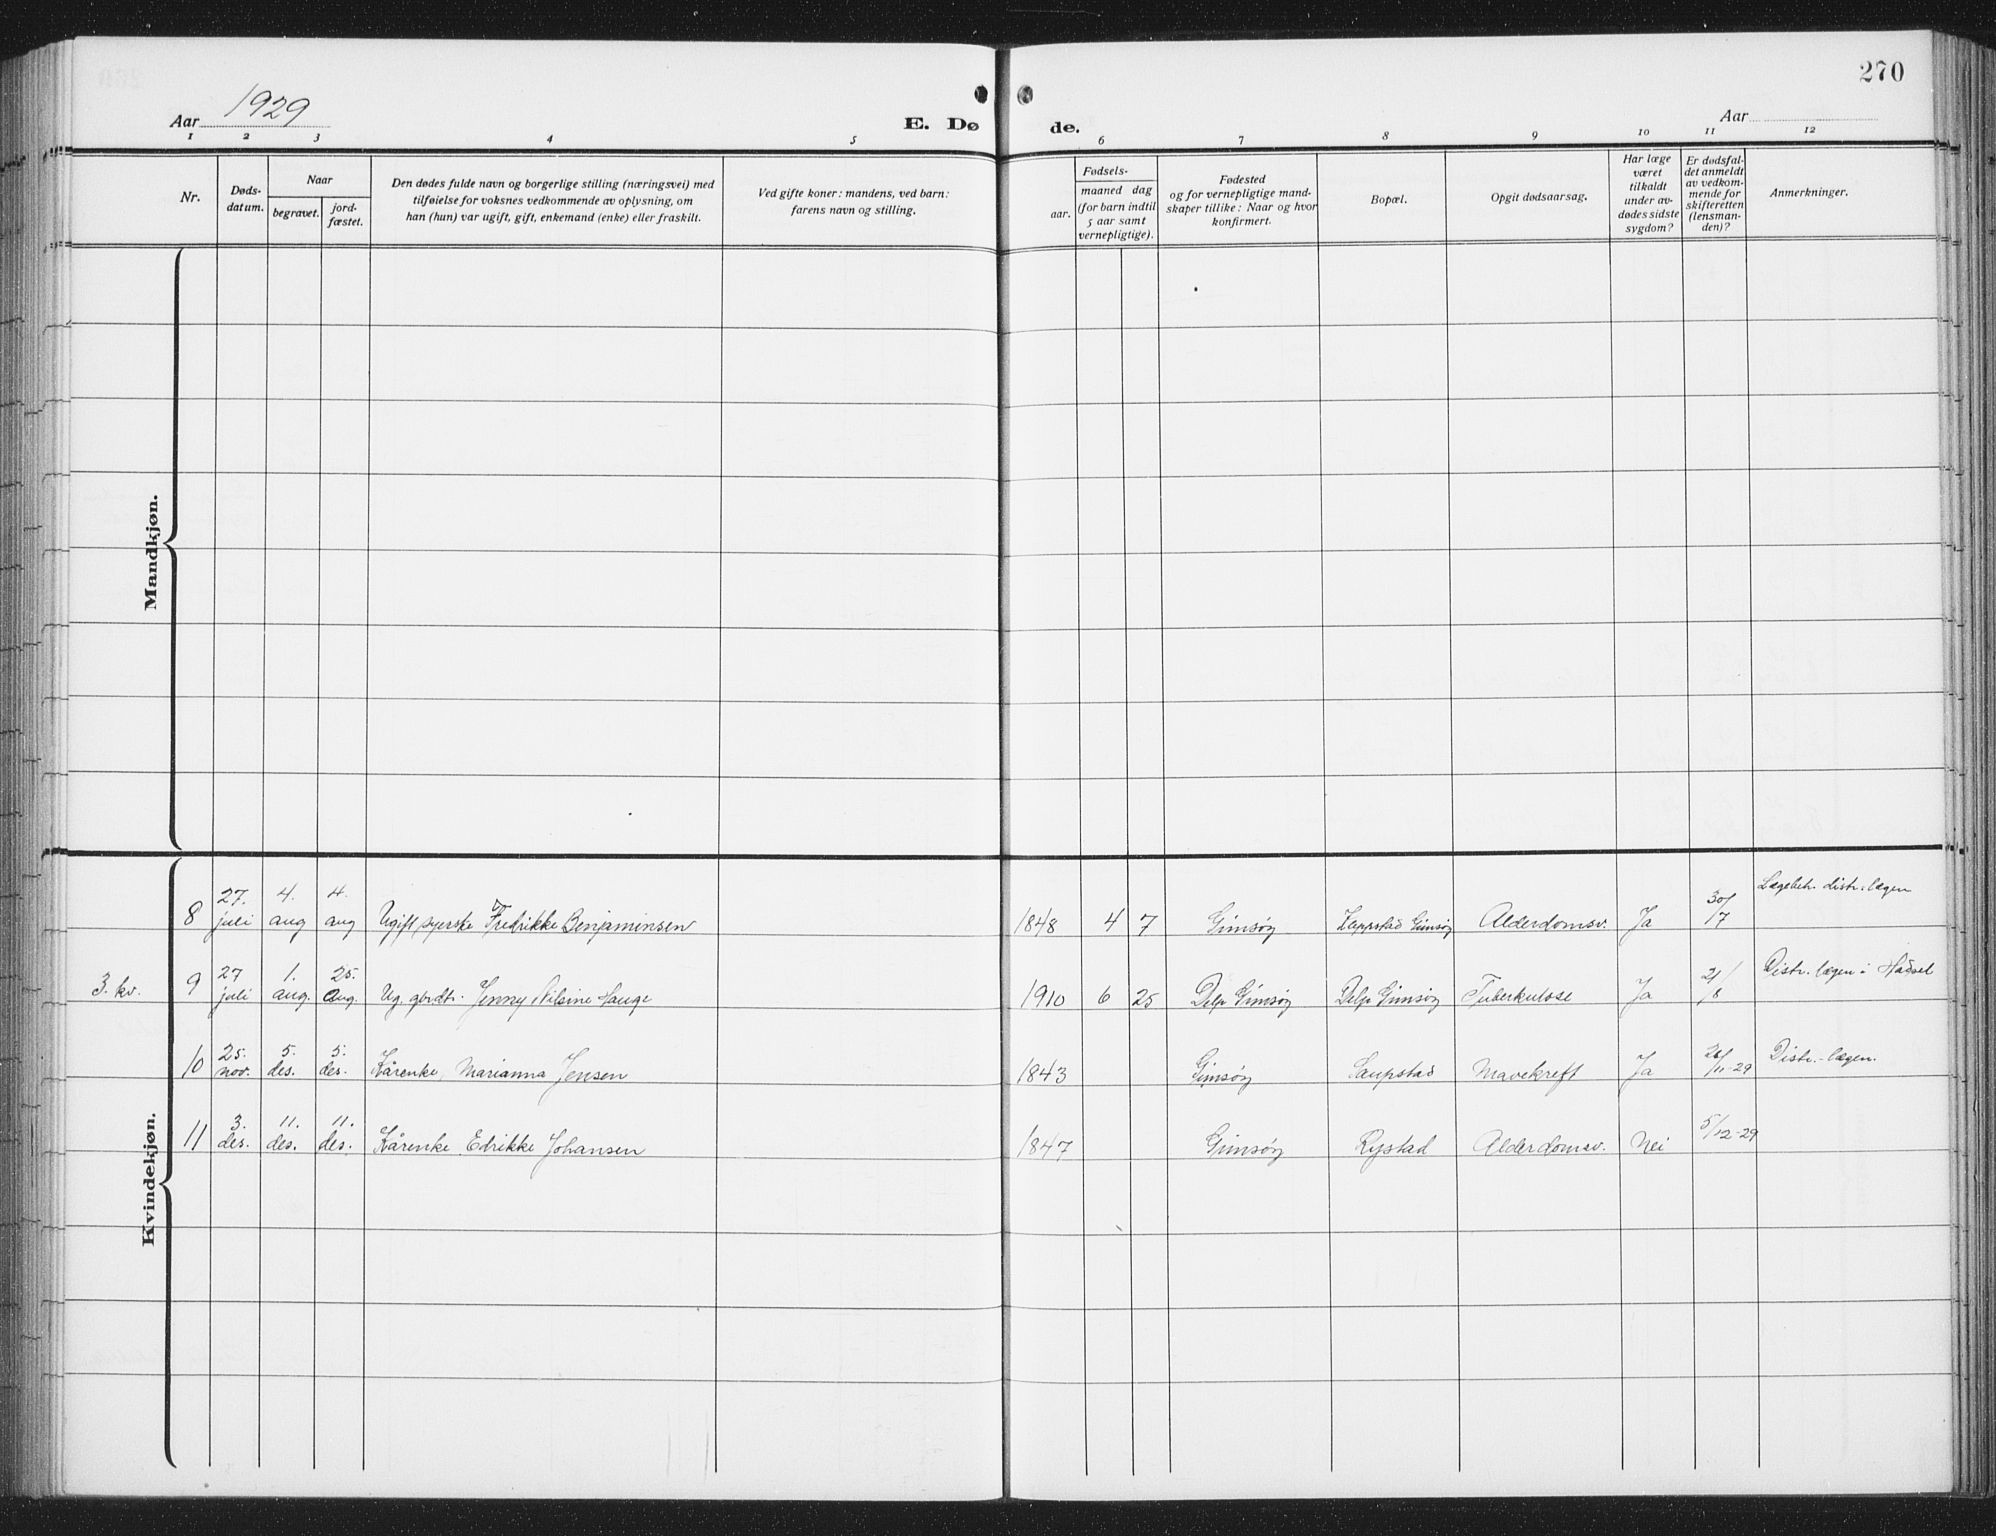 270
Aar 1929
E. Dø de.
Aar
1 2 3 4 5 6 7 8 9 10 11 12
Nr.
Døds-
datum.
Naar
begravet.
jord-
fæstet.
Den dødes fulde navn og borgerlige stilling (næringsvei) med
tilføielse for voksnes vedkommende av oplysning, om
han (hun) var ugift, gift, enkemand (enke) eller fraskilt.
Ved gifte koner: mandens, ved barn:
farens navn og stilling.
Fødsels-
aar.
maaned dag
(for barn indtil
5 aar samt
vernepligtige).
Fødested
og for vernepligtige mand-
skaper tillike: Naar og hvor
konfirmert.
Bopæl.
Opgit dødsaarsag.
Har læge
været
tilkaldt
under av-
dødes sidste
sygdom?
Er dødsfal-
det anmeldt
av vedkom-
mende for
skifteretten
(lensman-
den)?
Anmerkninger.
Mandkjøn.
Kvindekjøn.
8 27. juli 4. aug 4. aug Ugift syerske Fredrikke Benjaminsen 1848 4 7 Gimsøy Gimsøy Alderdomsv. Ja 30/7 Lægebeh. distr. lægen
3. kv. 9 27 juli 1. aug. 25. aug. Ug. gbrdtr. Jenny Nilsine Hauge 1910 6 25 Delp Gimsøy Delp Gimsøy Tuberkulose Ja Distr. lægen i Hadsel
10 25. nov. 5. des. 5. des. Kårenke Marianna Jensen 1843 Gimsøy Saupstad Mavekreft Ja 26/11-29 Distr.-lægen.
11 3. des. 11. des. 11. des. Kårenke Edrikke Johansen 1847 Gimsøy Rystad Alderdomsv. Nei 5/12-29